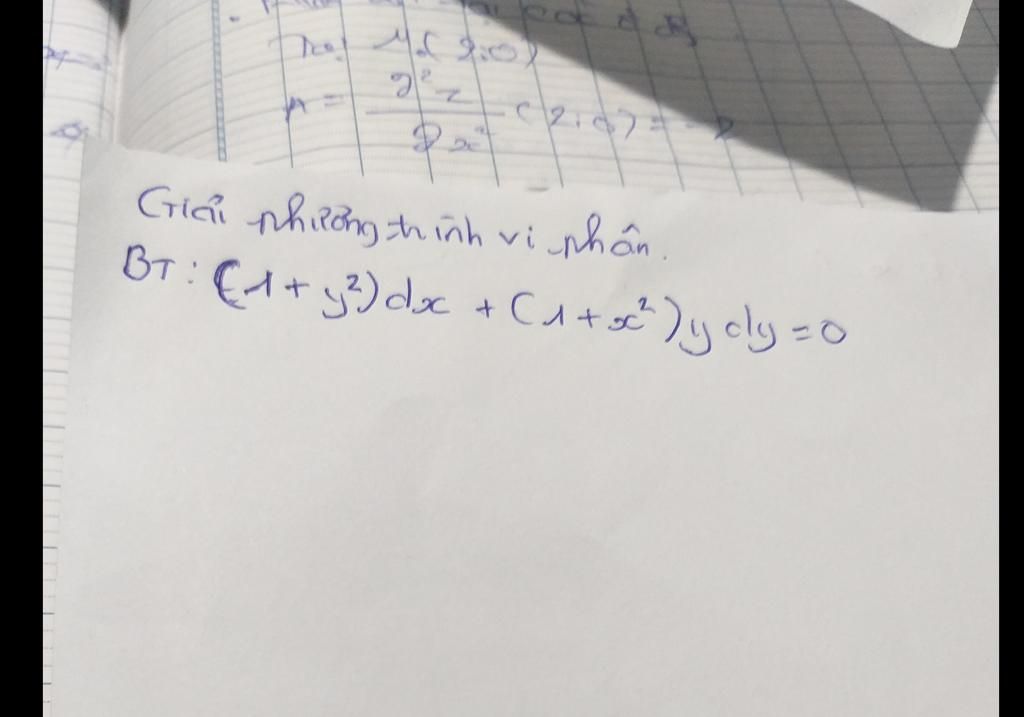 M(2;0)
A =
(2;0) = -2
Giải phương trình vi phân.
BT: (1 + y²)dx + (1 + x²)y dy = 0